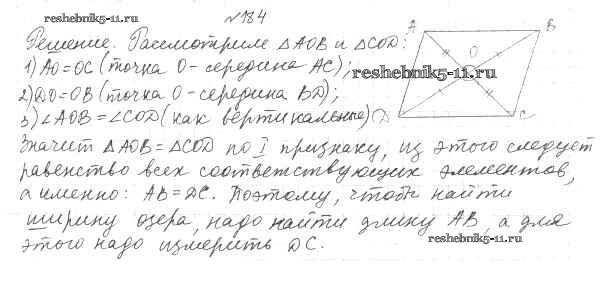 reshebnik5-11.ru
№184
Решение. Рассмотрим △AOB и △COD:
A B
1) AO=OC (точка O - середина AC);
O
reshebnik5-11.ru
2) DO=OB (точка O - середина BD);
3) ∠AOB=∠COD (как вертикальные)
D C
Значит △AOB=△COD по I признаку, из этого следует
равенство всех соответствующих элементов,
а именно: AB=DC. Поэтому, чтобы найти
ширину озера, надо найти длину AB, а для
этого надо измерить DC.
reshebnik5-11.ru